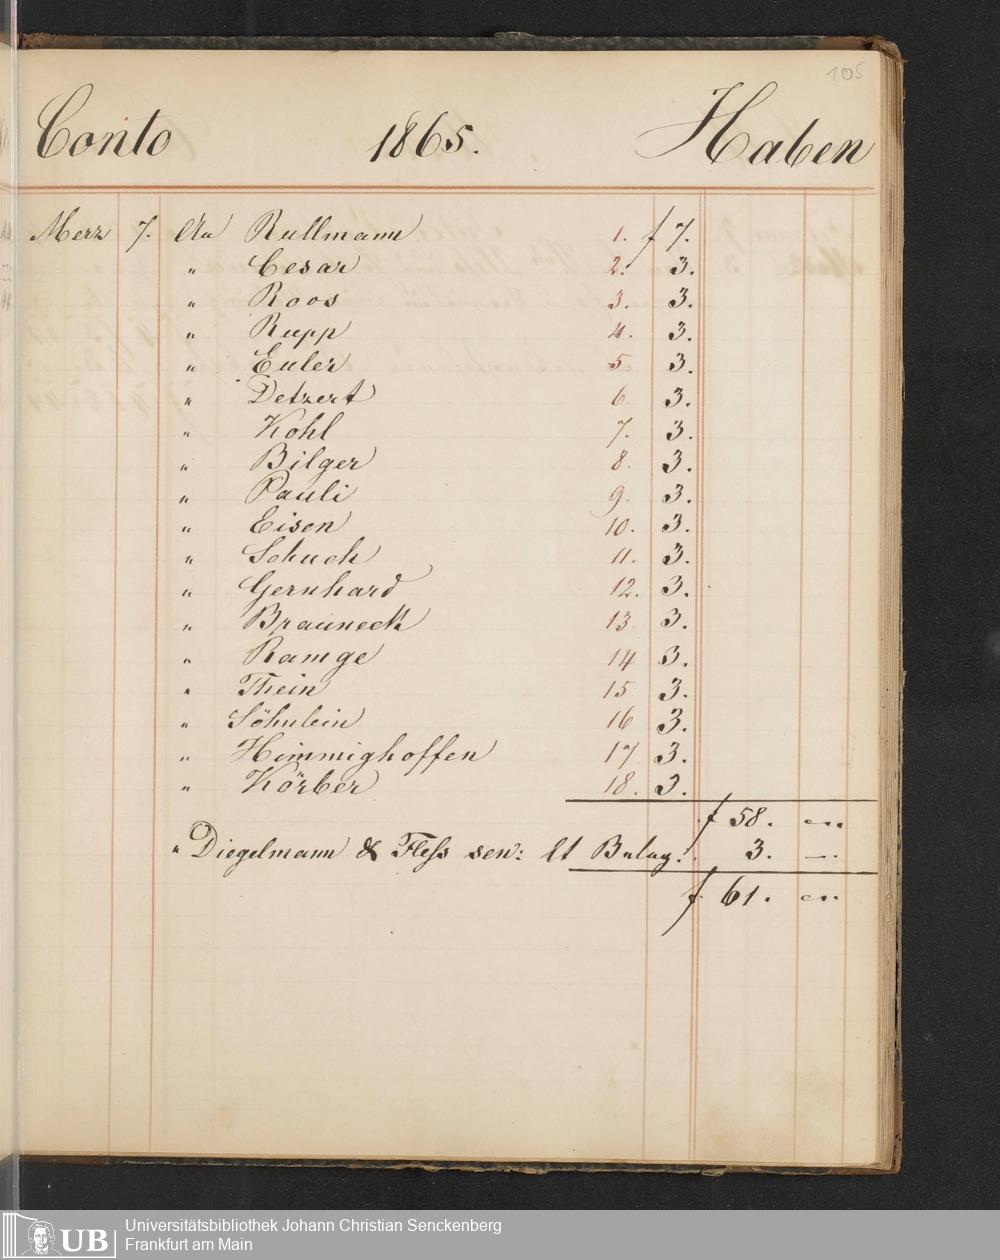 105
Conto 1865. Haben
Merz 7. An Rullmann 1. f 7.
" Cesar 2. 3.
" Roos 3. 3.
" Rupp 4. 3.
" Euler 5. 3.
" Detzert 6. 3.
" Kohl 7. 3.
" Bilger 8. 3.
" Pauli 9. 3.
" Eisen 10. 3.
" Schuch 11. 3.
" Gernhard 12. 3.
" Brauneck 13 3.
" Ramge 14 3.
" Thein 15 3.
" Söhnlein 16 3.
" Himmighoffen 17 3.
" Körber 18. 3.
f 58. —.
" Diegelmann & Fleſs sen: lt Belag. 3. —.
f 61. —.
Universitätsbibliothek Johann Christian Senckenberg
Frankfurt am Main
UB